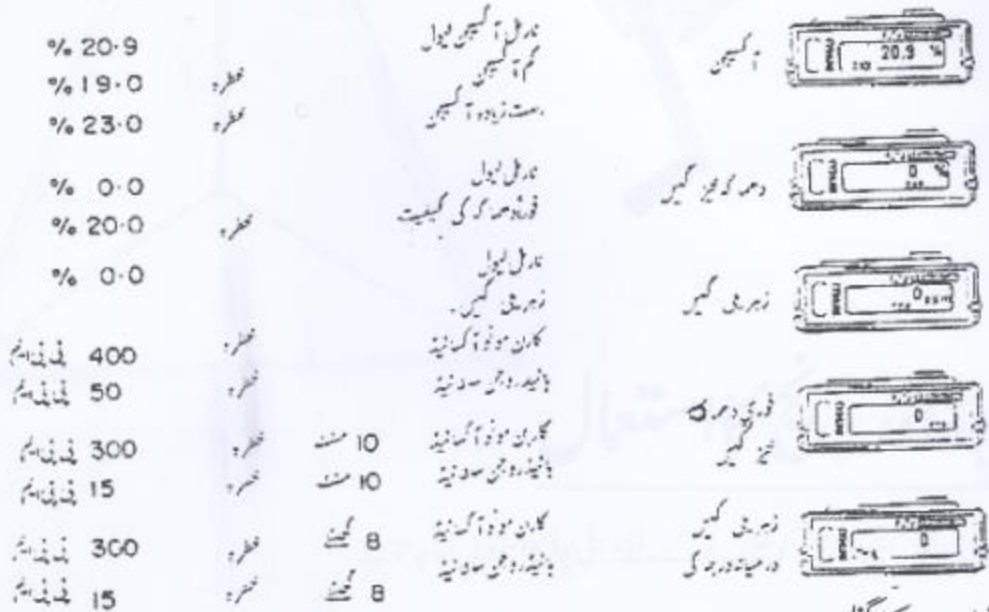 آکسیجن نارمل آکسیجن لیول 20.9 %
کم آکسیجن خطرہ 19.0 %
بہت زیادہ آکسیجن خطرہ 23.0 %
20.9 %
دھماکہ خیز گیس نارمل لیول 0.0 %
فوراً دھماکہ کی کیفیت خطرہ 20.0 %
0 %
زہریلی گیس نارمل لیول 0.0 %
زہریلی گیس۔
0 ppm
کاربن مونو آکسائیڈ خطرہ 400 پی پی ایم
ہائیڈروجن سلفائیڈ خطرہ 50 پی پی ایم
فوری دھماکہ
خیز گیس
0
کاربن مونو آکسائیڈ 10 منٹ خطرہ 300 پی پی ایم
ہائیڈروجن سلفائیڈ 10 منٹ خطرہ 15 پی پی ایم
زہریلی گیس کاربن مونو آکسائیڈ 8 گھنٹے خطرہ 300 پی پی ایم
درمیانہ درجہ کی ہائیڈروجن سلفائیڈ 8 گھنٹے خطرہ 15 پی پی ایم
0